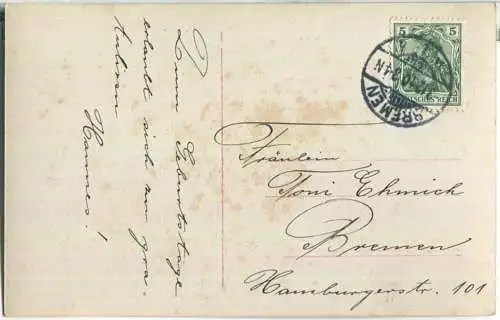 Zum Geburtstage
erlaubt sich zu gra-
tulieren
Hannes!
5 5
DEUTSCHES REICH
BREMEN
Fräulein
Toni Ehmick
Bremen
Hamburgerstr. 101